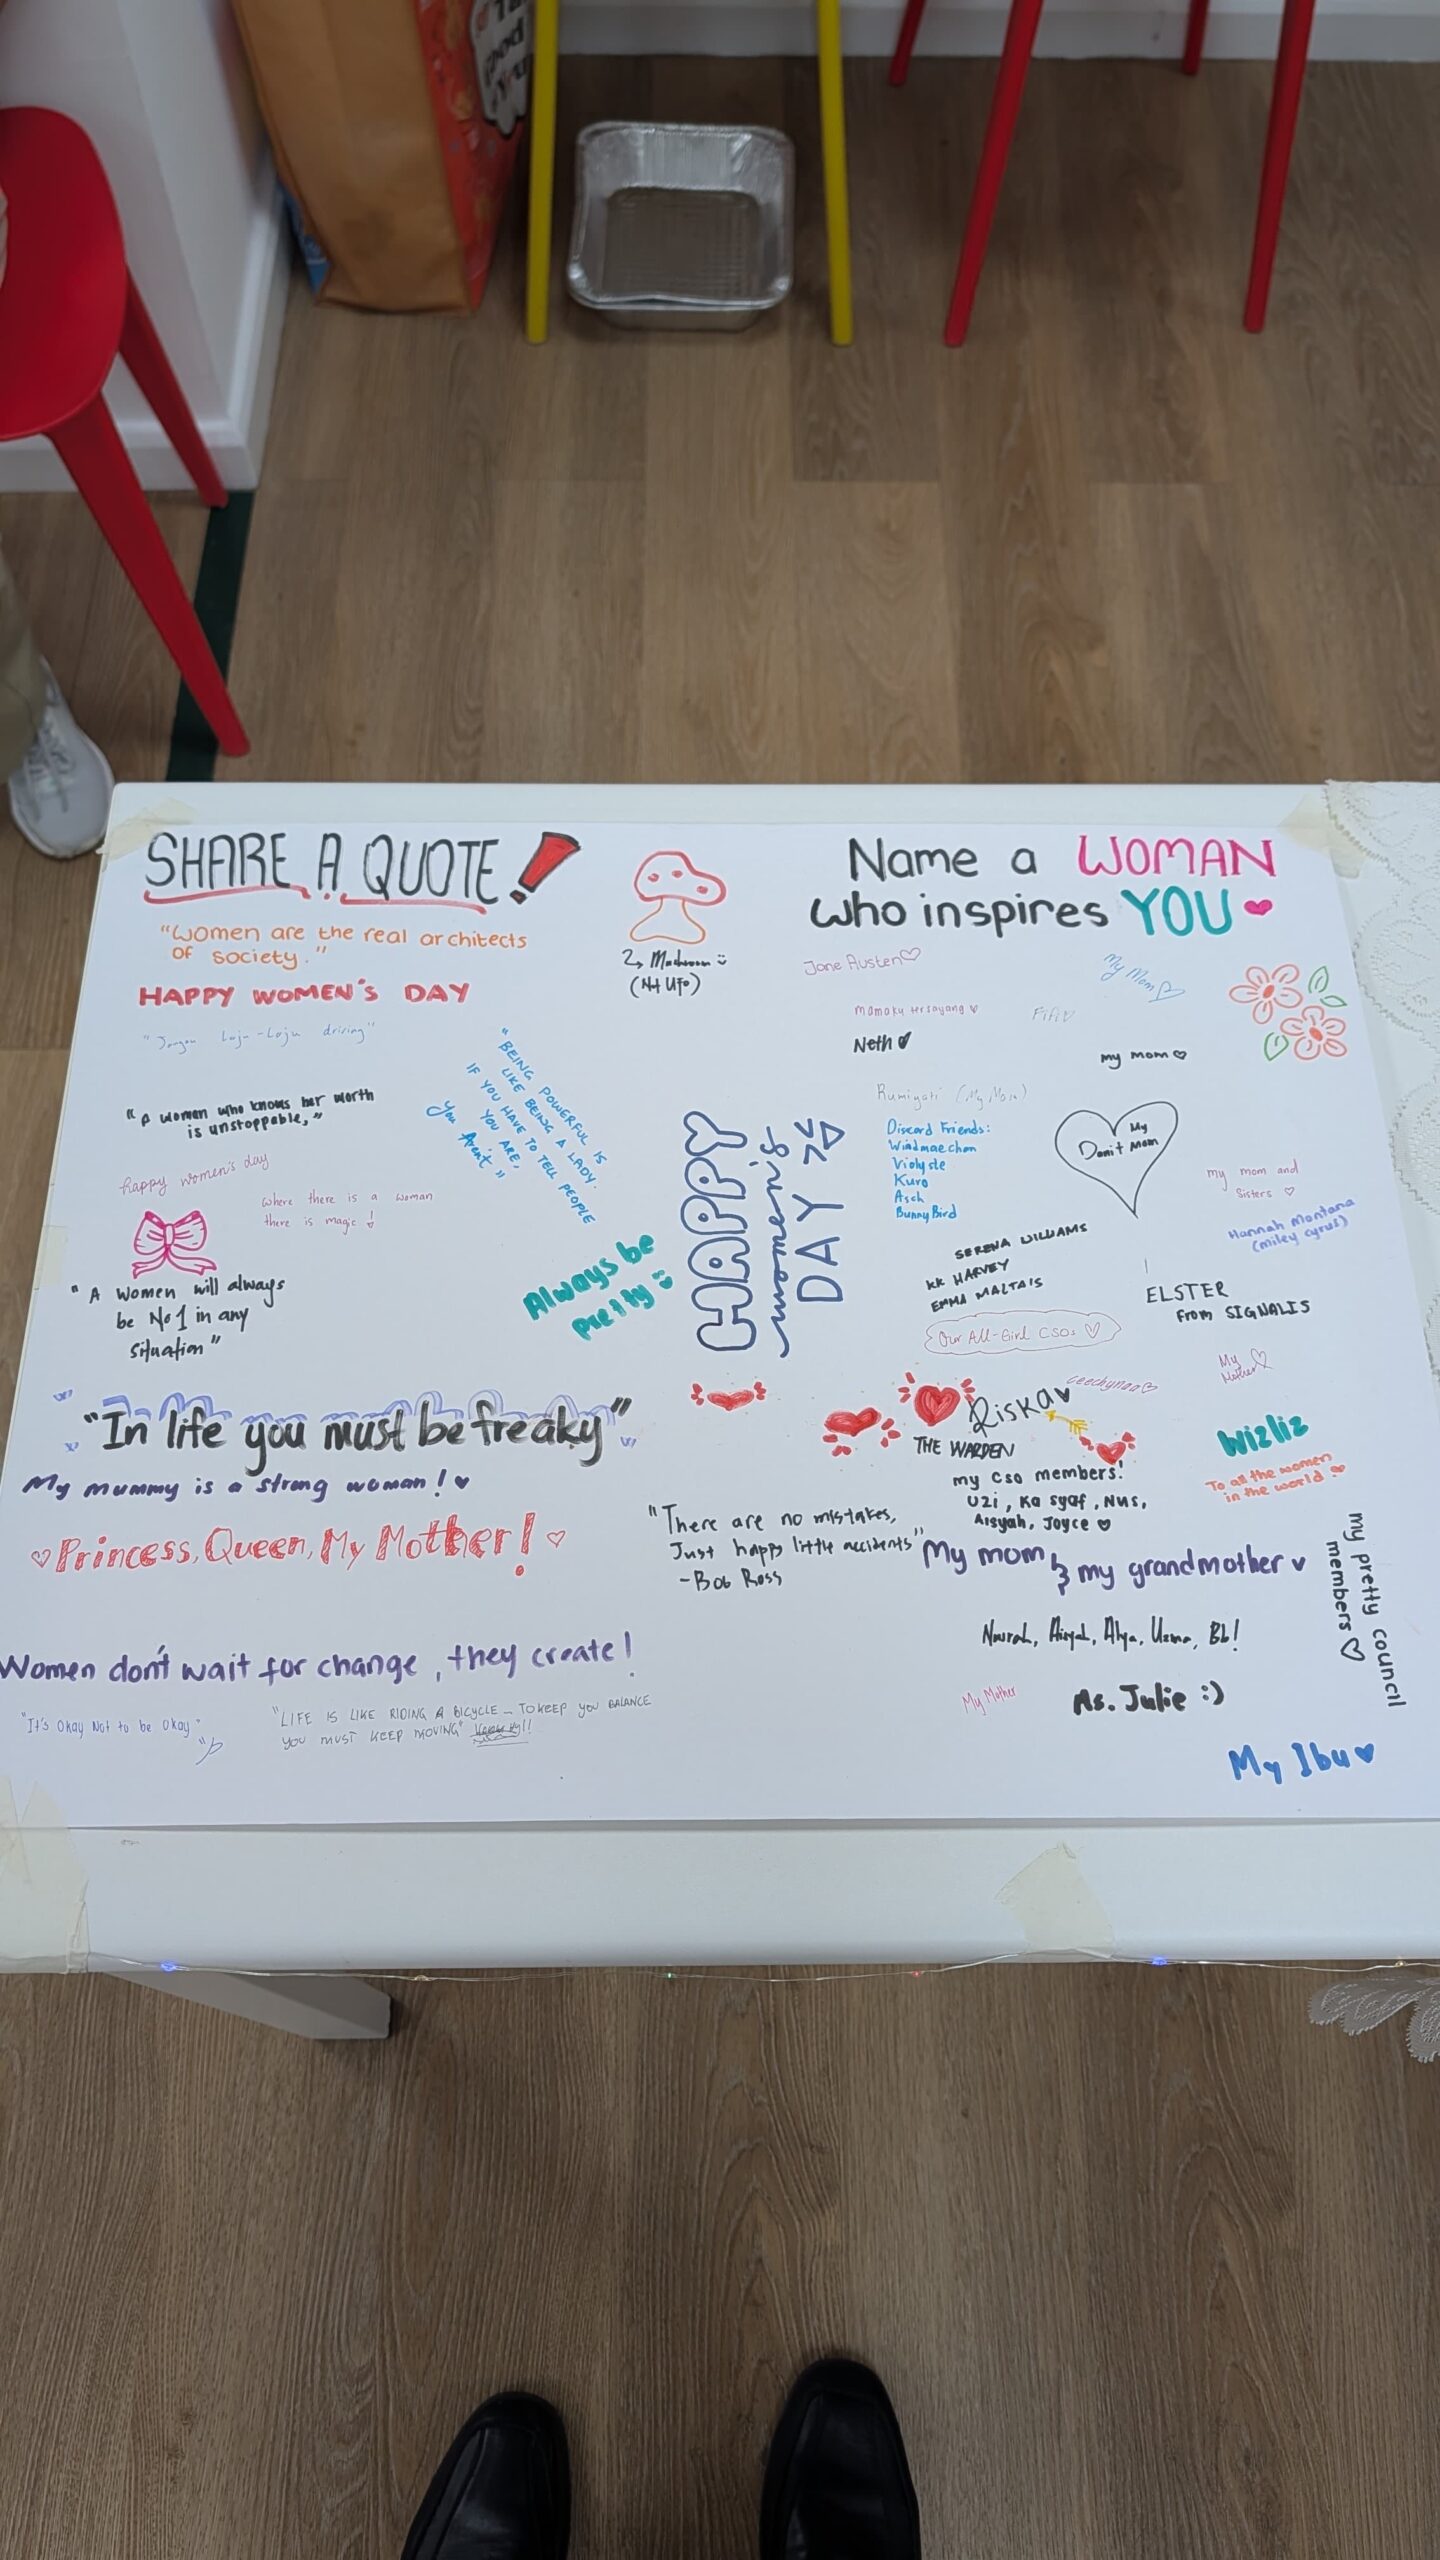 SHARE A QUOTE!
"Women are the real architects
of society."
HAPPY WOMEN'S DAY
Laju-Laju driving"
"A women who knows her worth
is unstoppable,"
happy women's day
where there is a woman
there is magic!
"A women will always
be No 1 in any
situation"
"BEING POWERFUL IS
LIKE BEING A LADY.
IF YOU HAVE TO TELL PEOPLE
YOU ARE,
You Aren't"
Always be
pretty :)
"In life you must be freaky"
My mummy is a strong woman!
Princess, Queen, My Mother!
Women don't wait for change, they create!
"It's Okay Not to be Okay"
"LIFE IS LIKE RIDING A BICYCLE - TO KEEP YOU BALANCE
YOU MUST KEEP MOVING"
Mushroom :)
(Not UFO)
HAPPY
women's
DAY
"There are no mistakes,
Just happy little accidents"
-Bob Ross
Name a WOMAN
who inspires YOU
Jane Austen
My Mom
mamaku tersayang
Fifi
Neth
my mom
Rumiyati (My Mom)
Discord Friends:
Windmaechan
Violyste
Kuro
Asch
BunnyBird
My
Mom
my mom and
sisters
Hannah Montana
(miley cyrus)
SERENA WILLIAMS
KK HARVEY
EMMA MALTAIS
ELSTER
from SIGNALIS
Our All-Girl CSOs
My
Mother
ceechynaa
Riska
THE WARDEN
Wizliz
To all the women
in the world
my cso members!
Uzi, Ka syaf, Nus,
Aisyah, Joyce
My mom & my grandmother
my pretty council
members
My Mother
As. Julie :)
My Ibu